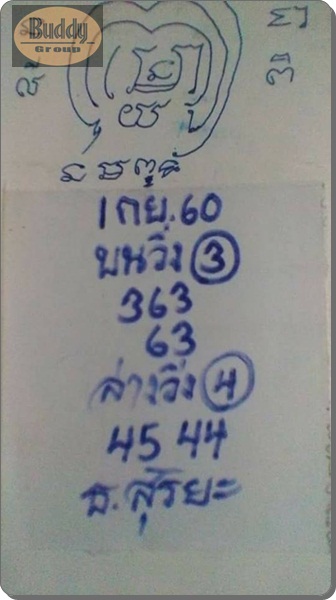 Buddy
Group
1 เมย. 60
บนวิ่ง 3
363
63
ล่างวิ่ง 4
45 44
อ. สุริยะ